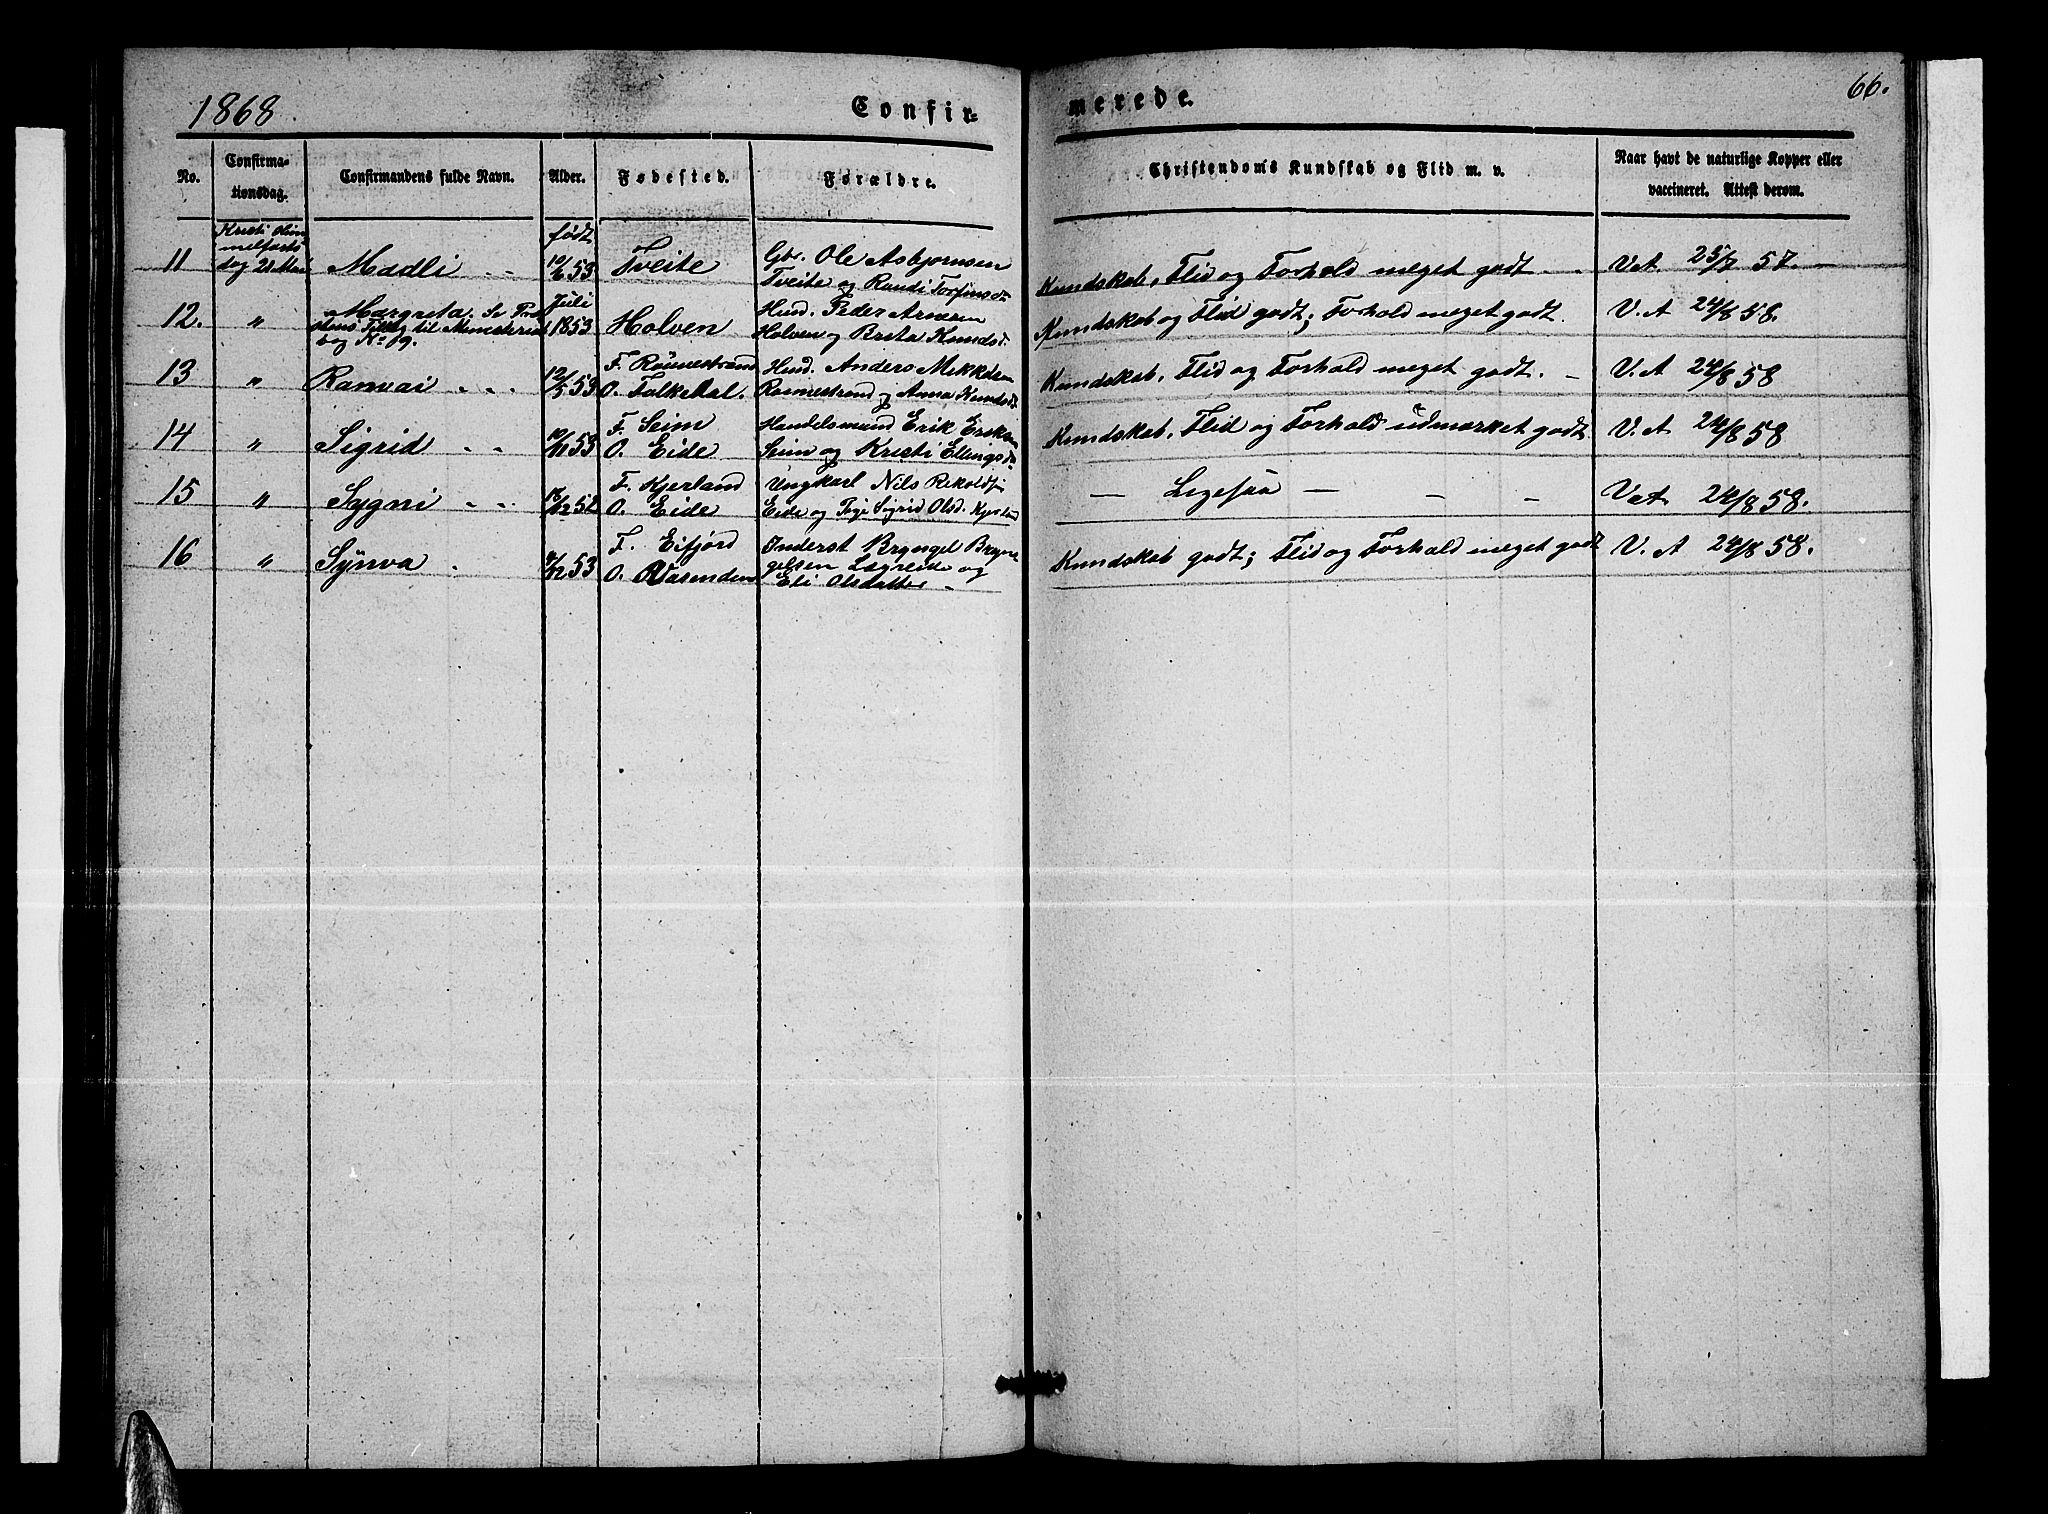 1868.
Confir-
merede.
66.
No.
Confirma-
tionsdag.
Confirmandens fulde Navn.
Alder.
Fødested.
Forældre.
Christendoms Kundskab og Flid m. v.
Naar havt de naturlige Kopper eller
vaccineret. Attest derom.
Kristi Him
melfarts
dag 21 Mai
født
11 Madli 10/6 53 Tveite
Gbr. Ole Asbjørnsen
Tveite og Randi Torfinsdt
Kundskab, Flid og Forhold meget godt
V.A 25/7 57.
12. " Margreta. Se Prov
stens Tillæg til Ministerial
bog No 19.
Juli
1853
Holven
Huusd. Peder Arnesen
Holven og Brita Knudsd.
Kundskab og Flid godt; Forhold meget godt.
V. A 24/8 58.
13 " Ranvai 12/5 53
F. Rönnestrand
O. Folkedal.
Huusd. Anders Mikkelsen
Rønnestrand og Anna Knudsdt
Kundskab, Flid og Forhold meget godt.
V. A 24/8 58
14 " Sigrid 10/11 53
F. Seim
O. Eide
Handelsmand Erik Eriksen
Seim og Kristi Ellingsdt
Kundskab, Flid og Forhold udmærket godt
V. A 24/8 58
15 " Sygni 16/12 52
F. Kjerland
O. Eide
Ungkarl Nils
Eide og Pige Sigrid Olsd. Kjerland
— Ligesaa — — —
V. A 24/8 58.
16 " Synva 9/12 53
F. Eifjord
O. Vasenden
Inderst Bryngel Bryn-
gelsen Lægreide og
Eli Olsdatter
Kundskab godt; Flid og Forhold meget godt
V. A 24/8 58.